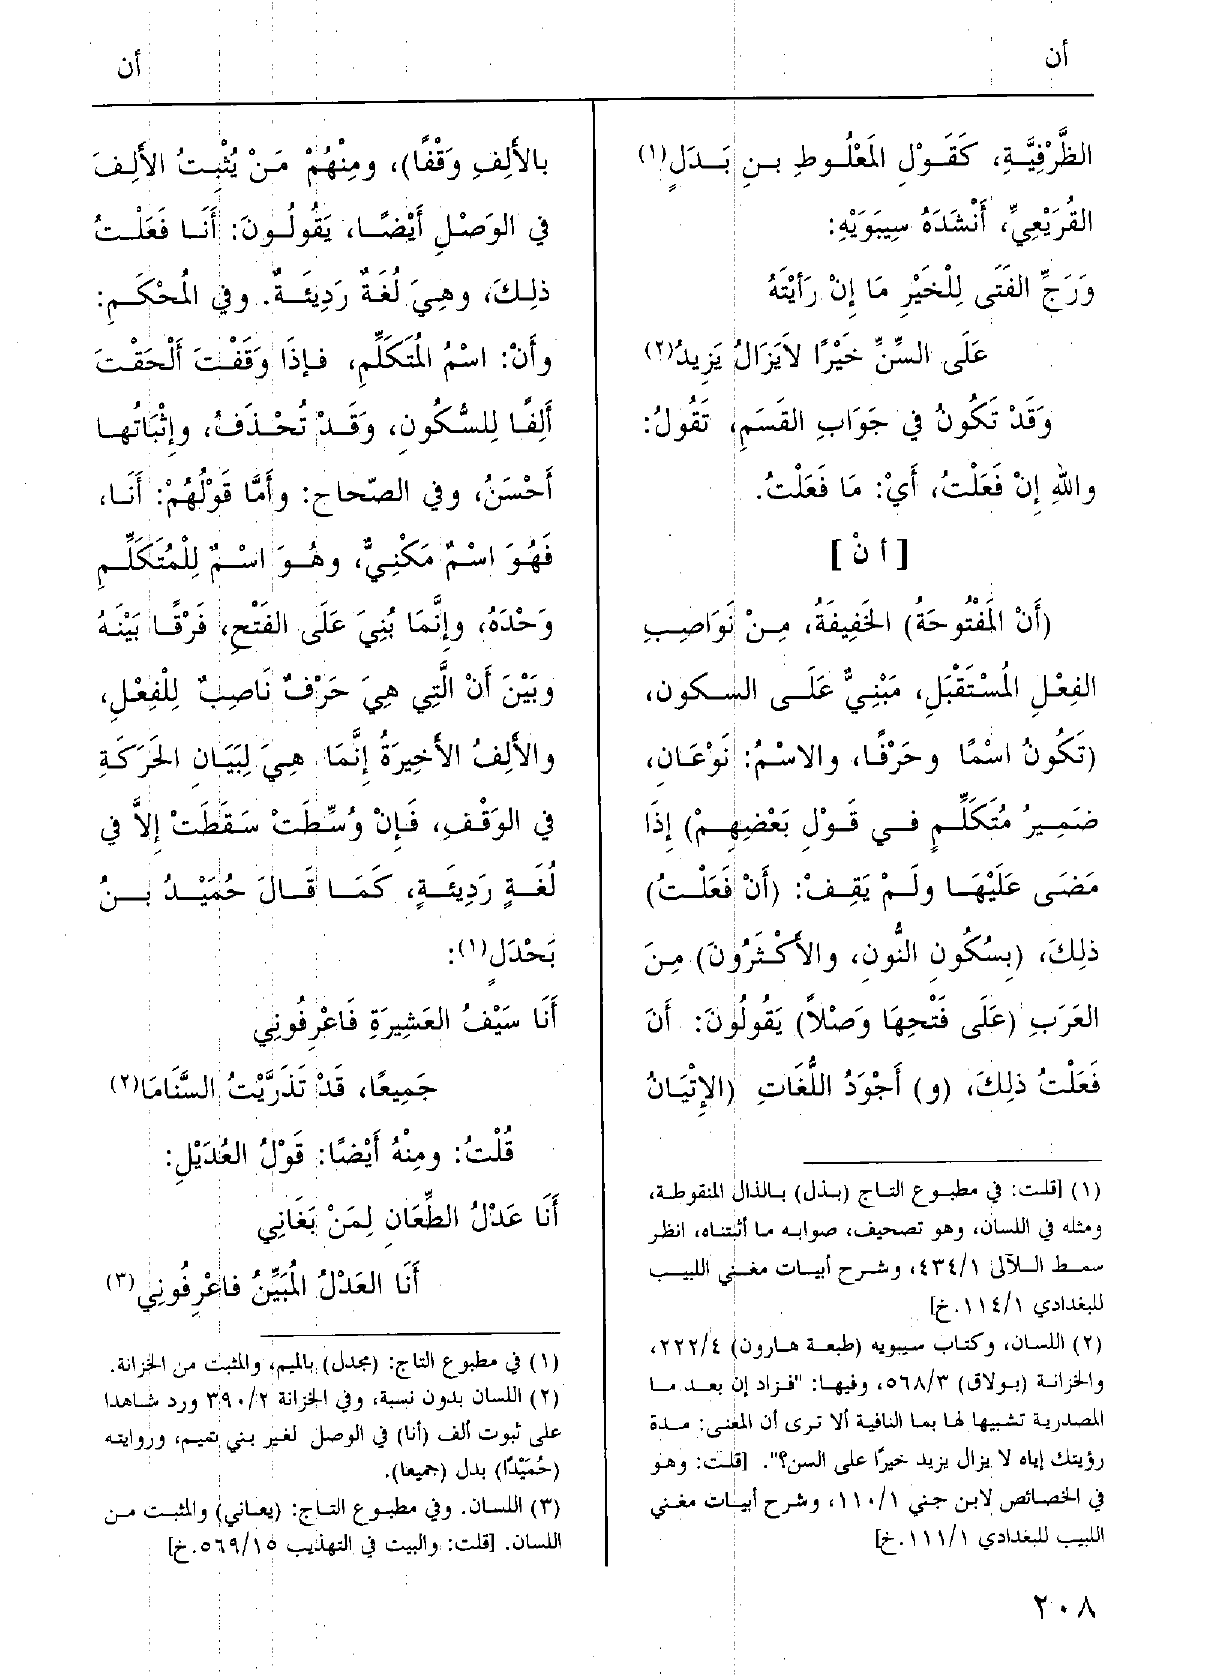 أن
أن
الظَّرْفِيَّةِ، كَقَوْلِ المَعْلُوطِ بنِ بَدَلٍ(١)
القُرَيْعِيِّ، أَنْشَدَهُ سِيبَوَيْهِ:
وَرَجِّ الفَتَى لِلْخَيْرِ مَا إِنْ رَأَيْتَهُ
عَلَى السِّنِّ خَيْرًا لاَيَزَالُ يَزِيدُ(٢)
وَقَدْ تَكُونُ فِي جَوَابِ القَسَمِ، تَقُولُ:
واللهِ إِنْ فَعَلْتُ، أَيْ: مَا فَعَلْتُ.
[أ نْ]
(أَنْ المَفْتُوحَةُ) الخَفِيفَةُ، مِنْ نَوَاصِبِ
الفِعْلِ المُسْتَقْبَلِ، مَبْنِيٌّ عَلَى السكون،
(تَكُونُ اسْمًا وحَرْفًا، والاسْمُ: نَوْعَانِ،
ضَمِيرُ مُتَكَلِّمٍ فِي قَوْلِ بَعْضِهِمْ) إِذَا
مَضَى عَلَيْهَا ولَمْ يَقِفْ: (أَنْ فَعَلْتُ)
ذلِكَ، (بِسُكُونِ النُّونِ، والأَكْثَرُونَ) مِنَ
العَرَبِ (عَلَى فَتْحِهَا وَصْلاً) يَقُولُونَ: أَنَ
فَعَلْتُ ذلِكَ، (و) أَجْوَدُ اللُّغَاتِ (الإِتْيَانُ
(١) [قلت: في مطبوع التاج (بذل) بالذال المنقوطة،
ومثله في اللسان، وهو تصحيف، صوابه ما أثبتناه، انظر
سمط اللآلى ٤٣٤/١، وشرح أبيات مغني اللبيب
للبغدادي ١١٤/١.خ]
(٢) اللسان، وكتاب سيبويه (طبعة هارون) ٢٢٢/٤،
والخزانة (بولاق) ٥٦٨/٣، وفيها: "فزاد إن بعد ما
المصدرية تشبيها لها بما النافية ألا ترى أن المعنى: مدة
رؤيتك إياه لا يزال يزيد خيرًا على السن؟". [قلت: وهو
في الخصائص لابن جني ١١٠/١، وشرح أبيات مغني
اللبيب للبغدادي ١١١/١.خ]
بالأَلِفِ وَقْفًا)، ومِنْهُمْ مَنْ يُثْبِتُ الأَلِفَ
في الوَصْلِ أَيْضًا، يَقُولُونَ: أَنَا فَعَلْتُ
ذلِكَ، وهِيَ لُغَةٌ رَدِيئَةٌ. وفي المُحْكَمِ:
وأَنْ: اسْمُ المُتَكَلِّمِ، فإِذَا وَقَفْتَ أَلْحَقْتَ
أَلِفًا لِلسُّكُونِ، وَقَدْ تُحْذَفُ، وإِثْبَاتُها
أَحْسَنُ، وفي الصّحاح: وأَمَّا قَوْلُهُمْ: أَنَا،
فَهُوَ اسْمٌ مَكْنِيٌّ، وهُوَ اسْمٌ لِلْمُتَكَلِّمِ
وَحْدَهُ، وإِنَّمَا بُنِيَ عَلَى الفَتْحِ، فَرْقًا بَيْنَهُ
وبَيْنَ أَنْ الَّتِي هِيَ حَرْفٌ نَاصِبٌ لِلْفِعْلِ،
والأَلِفُ الأَخِيرَةُ إِنَّمَا هِيَ لِبَيَانِ الحَرَكَةِ
في الوَقْفِ، فَإِنْ وُسِّطَتْ سَقَطَتْ إِلاَّ فِي
لُغَةٍ رَدِيئَةٍ، كَمَا قَالَ حُمَيْدُ بنُ
بَحْدَلٍ(١):
أَنَا سَيْفُ العَشِيرَةِ فَاعْرِفُونِي
جَمِيعًا، قَدْ تَذَرَّيْتُ السَّنَامَا(٢)
قُلْتُ: ومِنْهُ أَيْضًا: قَوْلُ العُدَيْلِ:
أَنَا عَدْلُ الطِّعَانِ لِمَنْ بَغَانِي
أَنَا العَدْلُ المُبَيِّنُ فاعْرِفُونِي(٣)
(١) في مطبوع التاج: (مجدل) بالميم، والمثبت من الخزانة.
(٢) اللسان بدون نسبة، وفي الخزانة ٣٩٠/٢ ورد شاهدا
على ثبوت ألف (أنا) في الوصل لغير بني تميم، وروايته
(حُمَيْدًا) بدل (جميعا).
(٣) اللسان. وفي مطبوع التاج: (يعاني) والمثبت من
اللسان. [قلت: والبيت في التهذيب ٥٦٩/١٥.خ]
٢٠٨